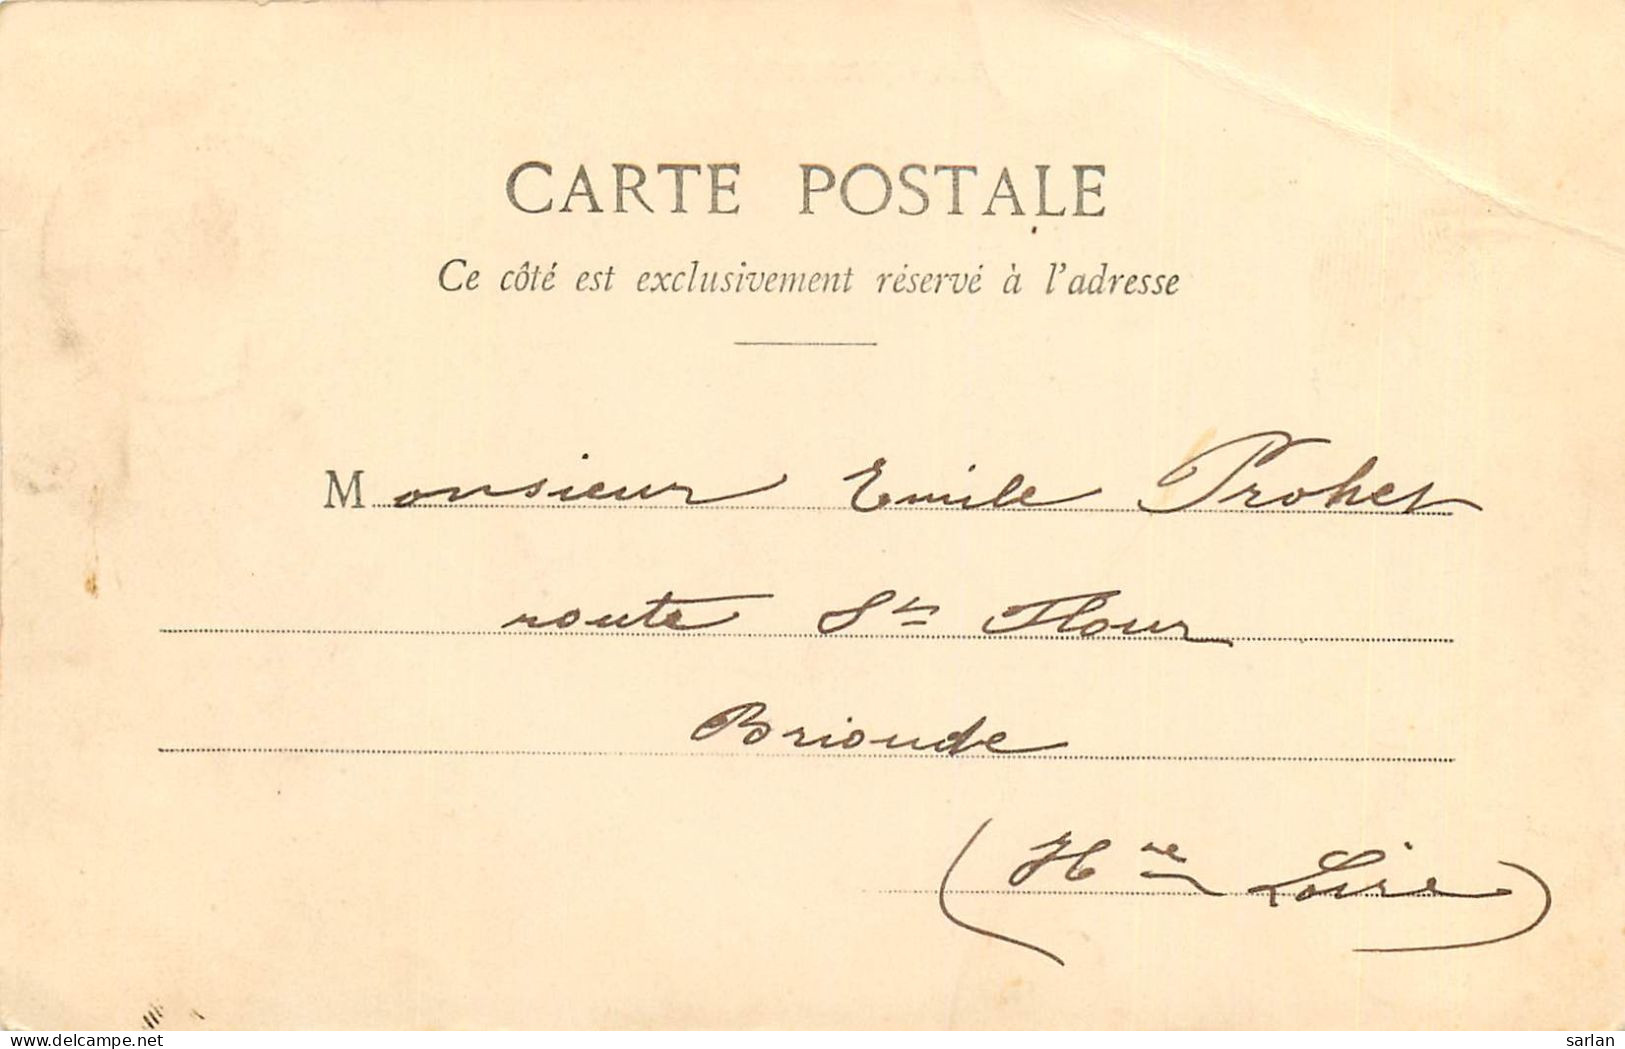 CARTE POSTALE
Ce côté est exclusivement réservé à l'adresse
Monsieur Emile Prohet
route St Flour
Brioude
(Hte Loire)
delcampe.net
sarlan